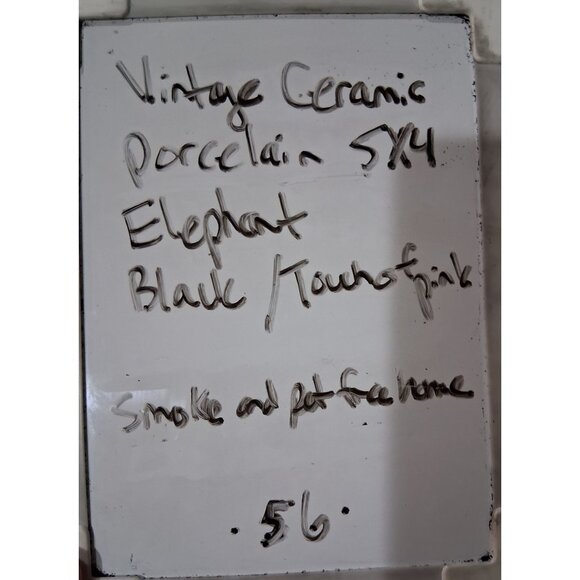 Vintage Ceramic
Porcelain 5X4
Elephant
Black/Touch of pink
Smoke and pet free home
. 56 .